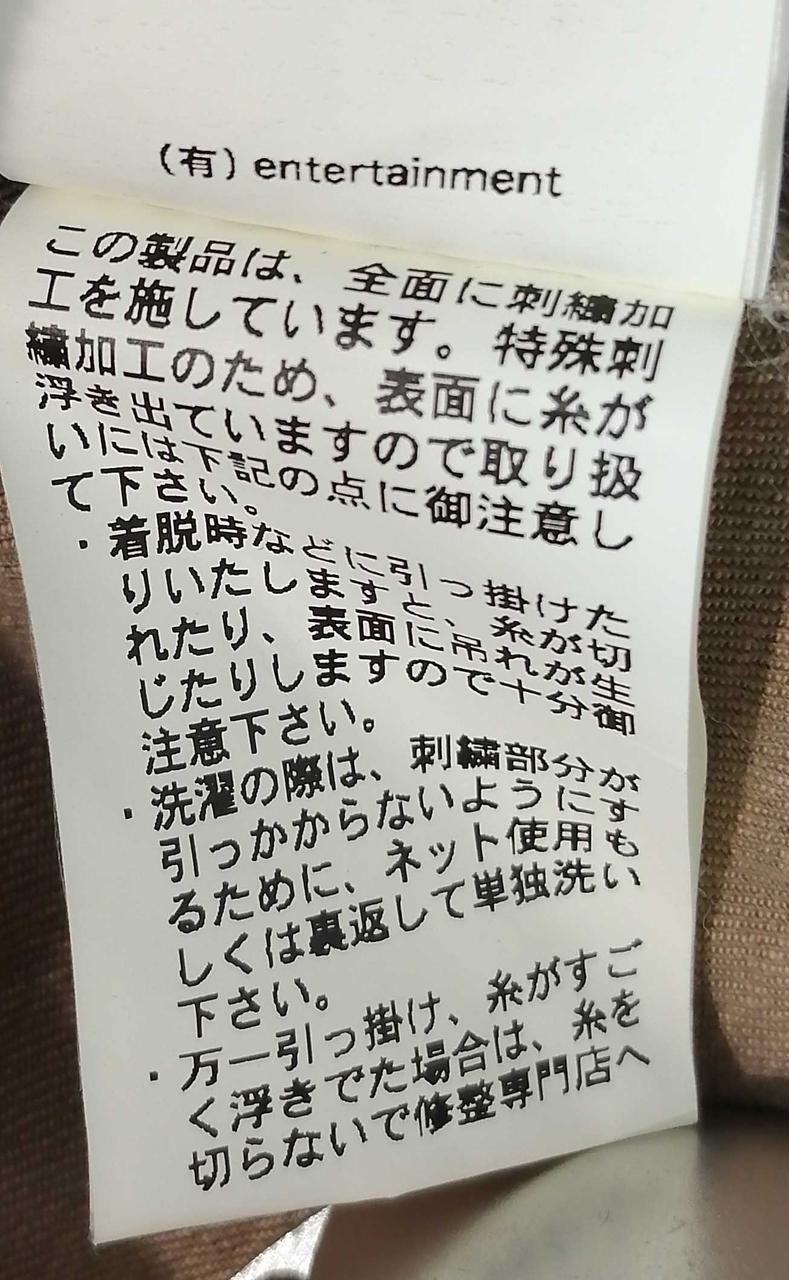 (有) entertainment
この製品は、全面に刺繍加
工を施しています。特殊刺
繍加工のため、表面に糸が
浮き出ていますので取り扱
いには下記の点に御注意し
て下さい。
・着脱時などに引っ掛けた
りいたしますと、糸が切
れたり、表面に吊れが生
じたりしますので十分御
注意下さい。
・洗濯の際は、刺繍部分が
引っかからないようにす
るために、ネット使用も
しくは裏返して単独洗い
下さい。
・万一引っ掛け、糸がすご
く浮きでた場合は、糸を
切らないで修整専門店へ